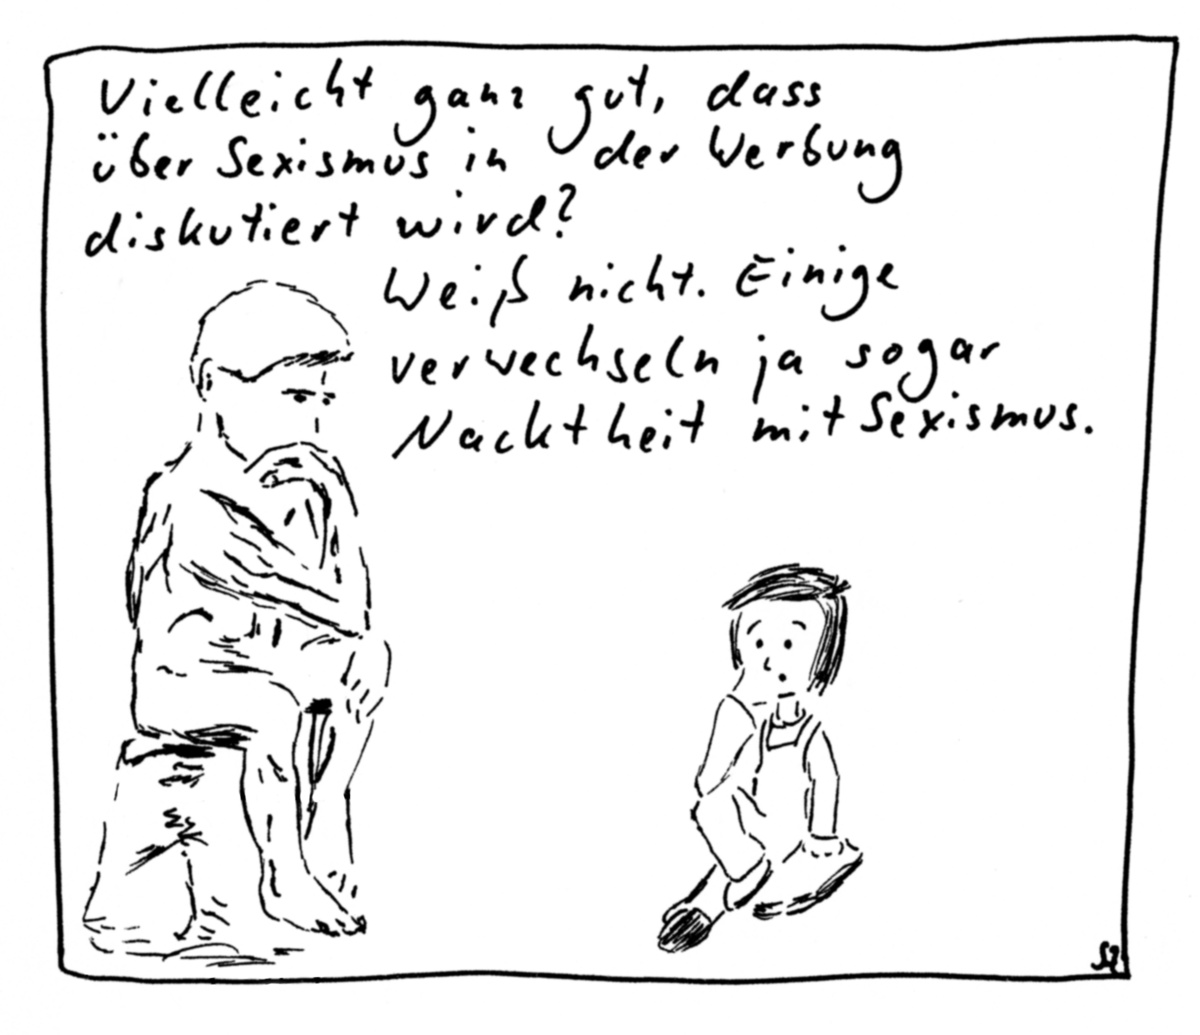 Vielleicht ganz gut, dass
über Sexismus in der Werbung
diskutiert wird?
Weiß nicht. Einige
verwechseln ja sogar
Nacktheit mit Sexismus.